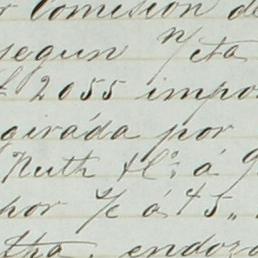 r Comision de
segun n/cta
2055 impo
girada por
Ruth & Co. á
por %c á 45 "
endoza